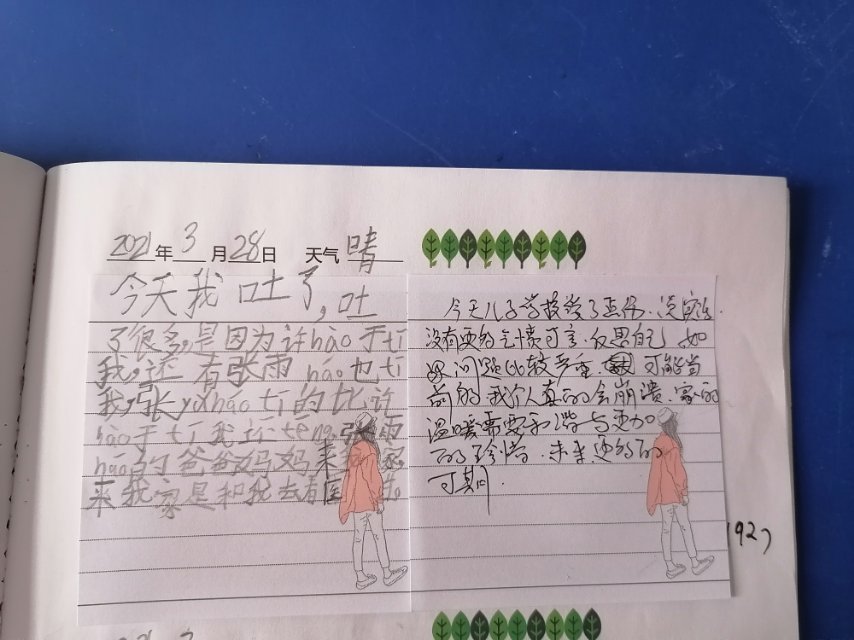 2021年3月28日 天气 晴
今天我吐了,吐
了很多,是因为许hào于tī
我,还有张雨háo也tī
我,张yǔháo tī的比许
hào于tī我还téng,张雨
háo的爸爸妈妈来家,
来我家是和我去看医
今天儿子学校受了点伤.说实话.
没有更多心情可言.反思自己 如
果问题比较严重. 可能当
前的我个人真的会崩溃.家的
温暖需要和谐与更加
的珍惜.未来还有的
可期.
192)